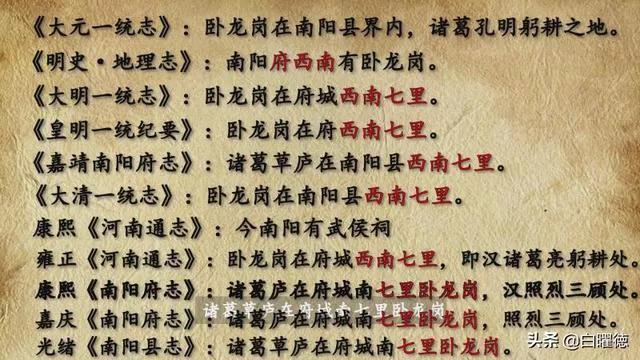 《大元一统志》：卧龙岗在南阳县界内，诸葛孔明躬耕之地。
《明史·地理志》：南阳府西南有卧龙岗。
《大明一统志》：卧龙岗在府城西南七里。
《皇明一统纪要》：卧龙岗在府西南七里。
《嘉靖南阳府志》：诸葛草庐在南阳县西南七里。
《大清一统志》：卧龙岗在南阳县西南七里。
康熙《河南通志》：今南阳有武侯祠
雍正《河南通志》：卧龙岗在府城西南七里，即汉诸葛亮躬耕处。
康熙《南阳府志》：诸葛草庐在府城南七里卧龙岗，汉照烈三顾处。
诸葛草庐在府城南七里卧龙岗
嘉庆《南阳府志》：诸葛草庐在府城南七里卧龙岗，照烈三顾处。
光绪《南阳县志》：诸葛草庐在府城南七里卧龙岗
头条 @白曜德